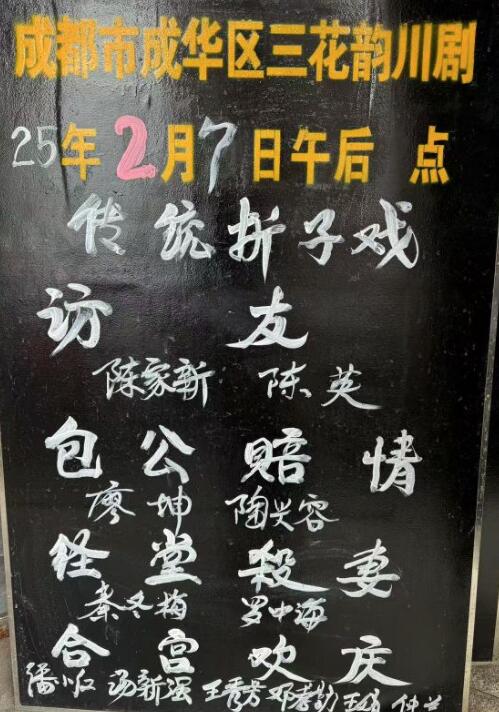 成都市成华区三花韵川剧
25年2月7日午后 点
传统折子戏
访友
陈家新 陈英
包公赔情
廖坤 陶兴容
经堂殺妻
秦冬梅 罗中海
合宫欢庆
潘小红 汤新强 王秀芳 邓孝勤